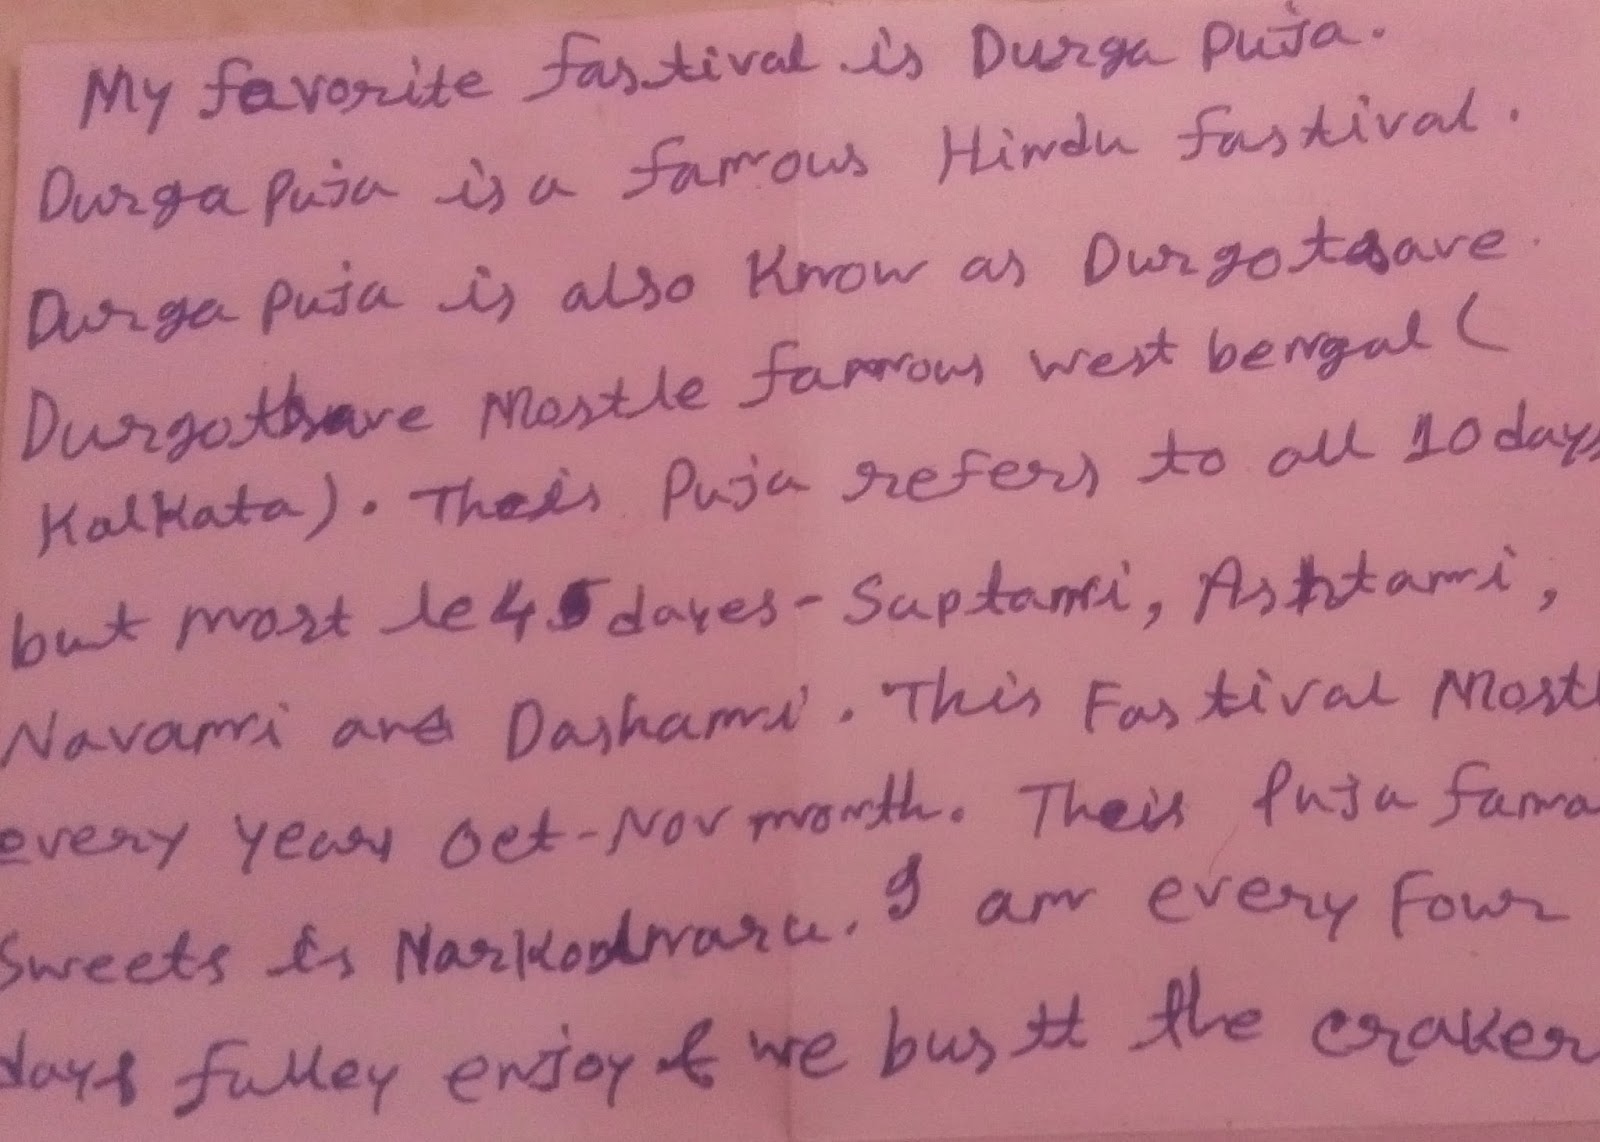 My favorite fastival is Durga Puja.
Durga Puja is a famous Hindu fastival.
Durga Puja is also Know as Durgotsave
Durgotsave Mostle famous west bengal (
Kalkata). Theis Puja refers to all 10 days
but most le 4 5 dayes - Saptami, Ashtami,
Navami and Dashami. This Fastival Mostl
every years Oct-Nov month. Theis Puja fama
Sweets is I am every Four
days fulley enjoy & we bustt the craker